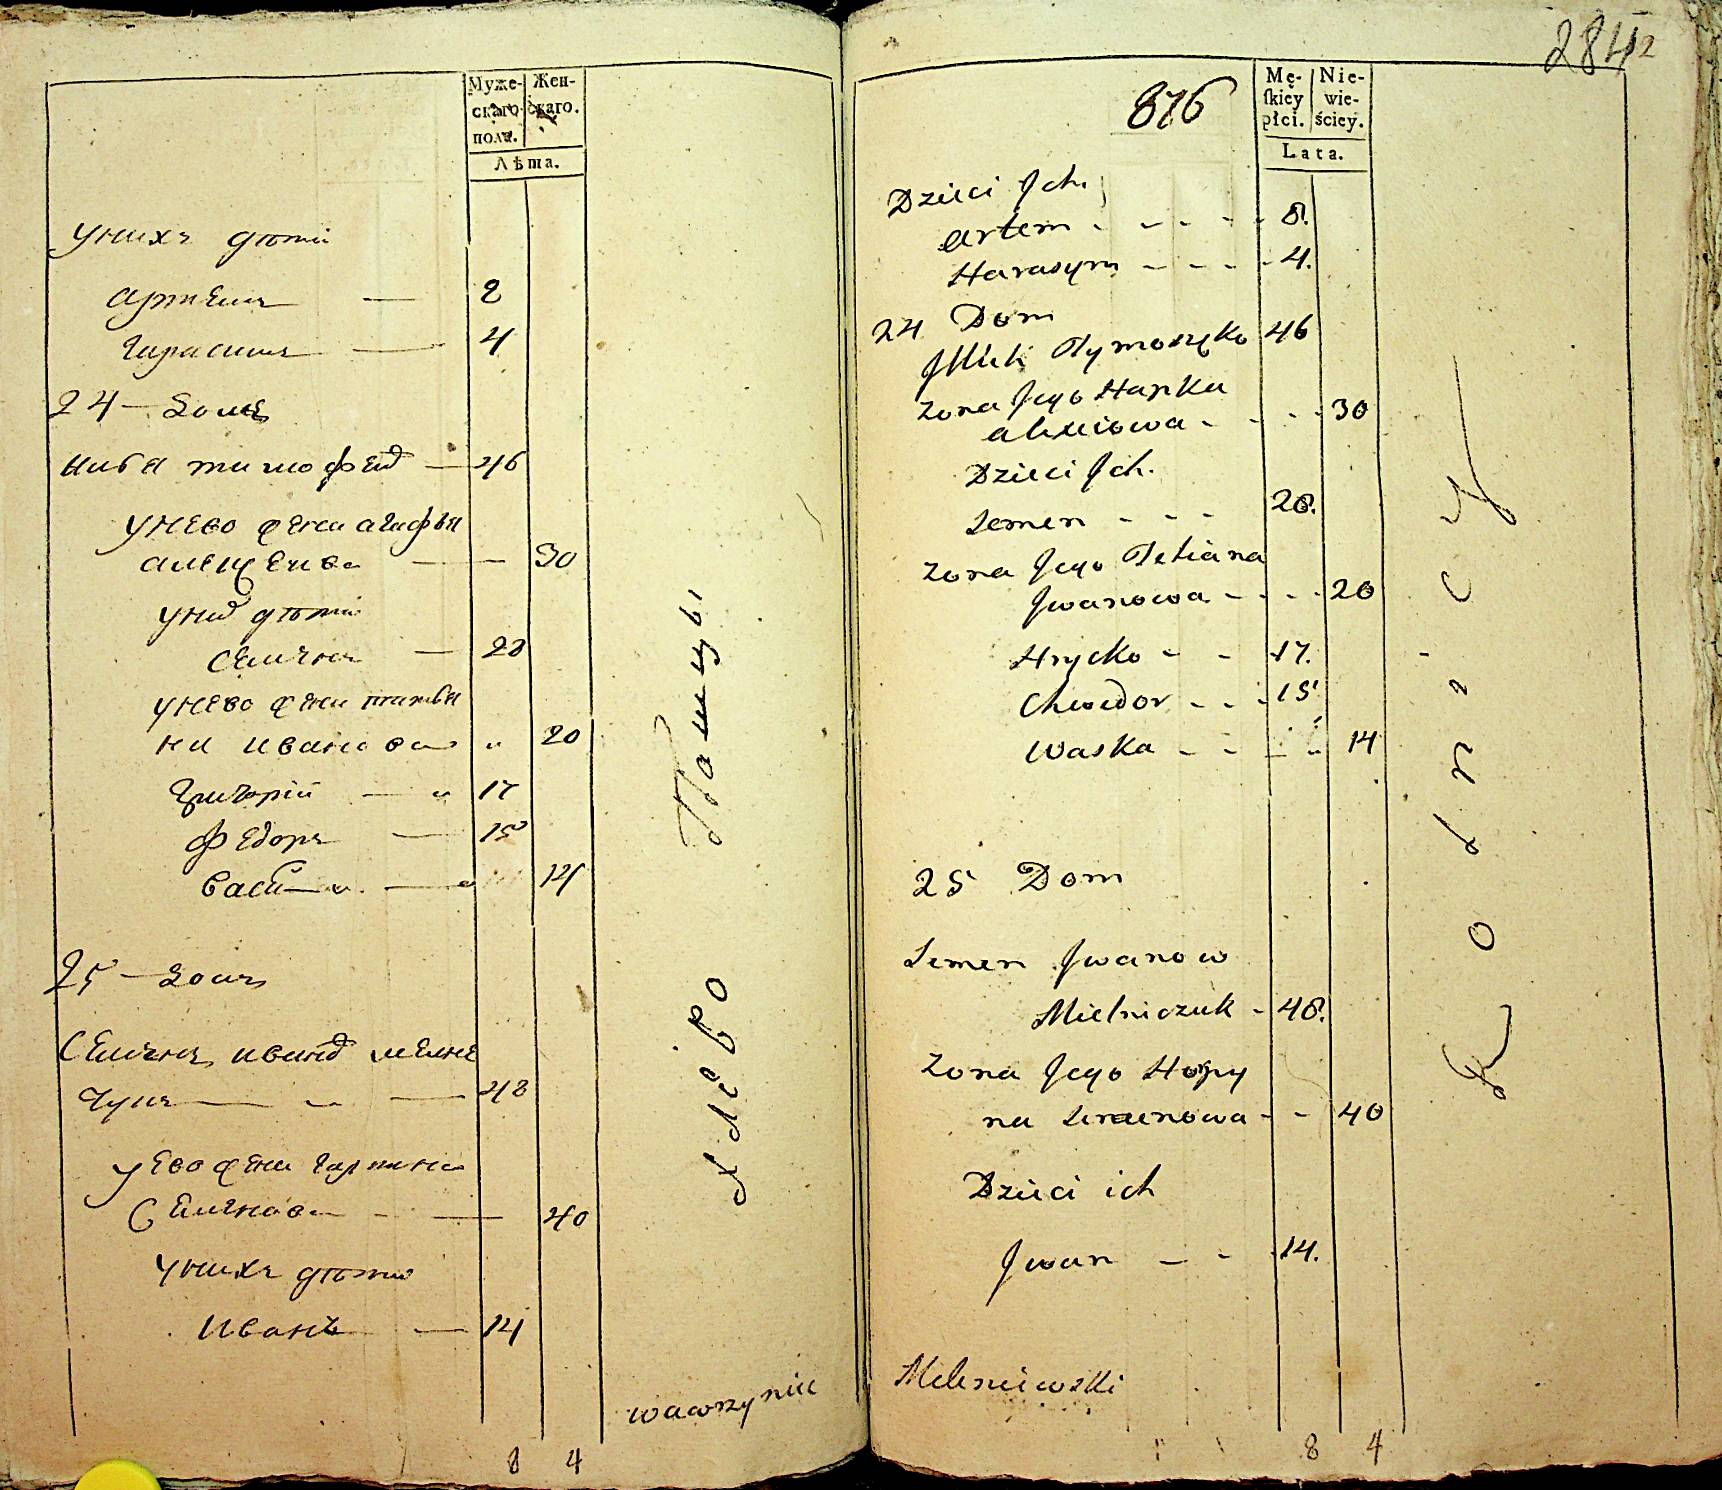 Муже-
скаго
пола.
Жен-
скаго.
Лѣта.
у нихъ дѣти
Артемъ — 8
Гарасимъ — 4
24 — Домъ
тимофей — 46
у нево жена агафья
алещеева — 30
у них дѣти
Семенъ — 28
у нево жена татья
на иванова „ 20
Григорій — „ 17
Федоръ — 15
Васка — 14
25 — Домъ
Семенъ иванов мелни
чукъ — 48
у ево жена гарпина
Семенова — 40
у нихъ дѣти
Иванъ — 14
8 4
wawrzyniec
284
2
876
Mę-
ſkiéy
płci.
Nie-
wie-
ściey.
Lata.
Dzieci Jch
Artem - - - - 8.
Harasym - - - - 4.
24 Dom
Tymoszyko 46
Zona Jego Hapka
alexiowa - - - - 30
Dzieci Jch.
Semen - - - 28.
Zona Jego Tetiana
Jwanowa - - - - 20
Hrycko - - 17.
Chwedor - - - 15
Waska - - - „ 14
25 Dom
Semen Jwanow
Mielniczuk - 48.
Zona Jego Horpy
na Semenowa - - 40
Dzieci ich
Jwan - - - 14.
8 4